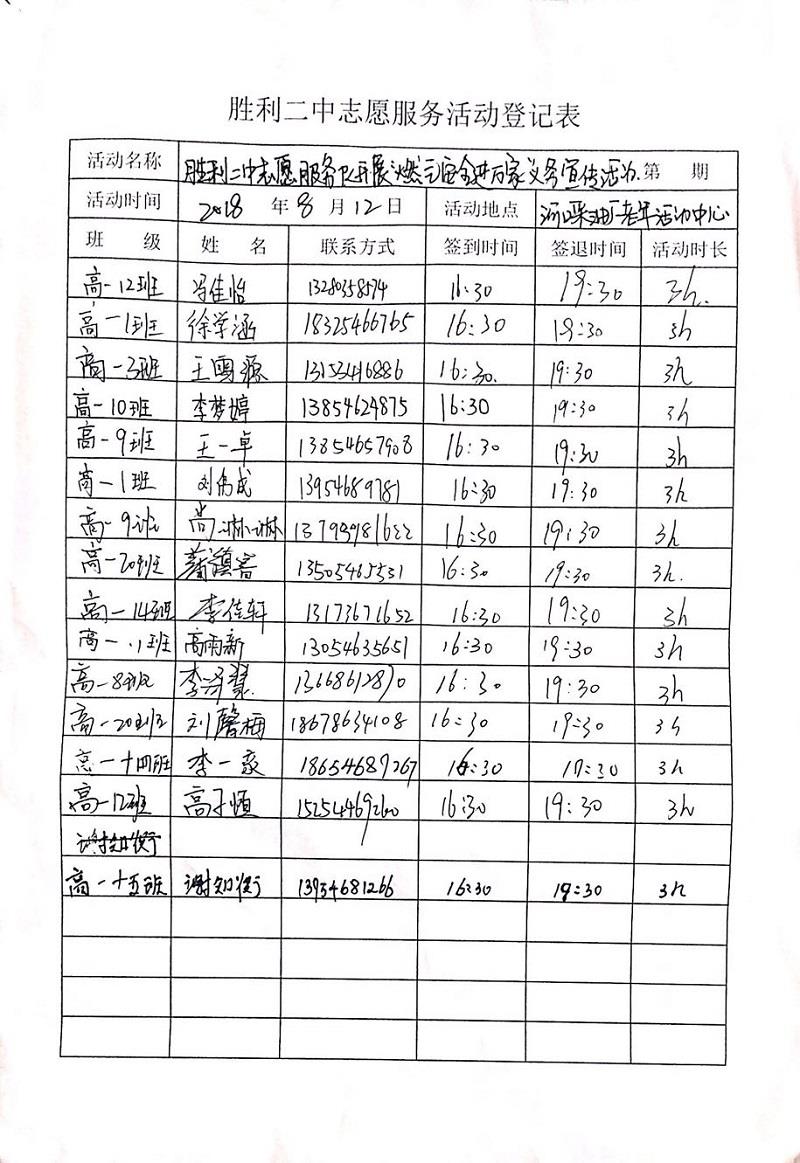 胜利二中志愿服务活动登记表
活动名称 胜利二中志愿服务队开展"燃气安全进万家"义务宣传活动 第 期
活动时间 2018 年 8 月 12 日 活动地点 河口采油厂老年活动中心
班 级 姓 名 联系方式 签到时间 签退时间 活动时长
高一12班 冯佳怡 13280358574 16:30 19:30 3h.
高一1班 徐学涵 18325466765 16:30 19:30 3h
高一3班 王雪源 13153416886 16:30. 19:30 3h
高一10班 李梦婷 13854624875 16:30 19:30 3h
高一9班 王一卓 13854657908 16:30 19:30 3h
高一1班 刘伟成 13954689781 16:30 19:30 3h
高一9班 尚琳琳 16:30 19:30 3h
高一20班 13505465531 16:30 19:30 3h.
高一14班 李佳轩 13173671652 16:30 19:30 3h
高一.1班 高雨新 13054635651 16:30 19:30 3h
高一8班 13668612870 16:30 19:30 3h
高一20班 刘馨梅 18678634108 16:30 19:30 3h
高一十四班 李一豪 18654689267 16:30 19:30 3h
高一12班 高子恒 15254469260 16:30 19:30 3h
谢知衡
高一十五班 谢知衡 13954681266 16:30 19:30 3h